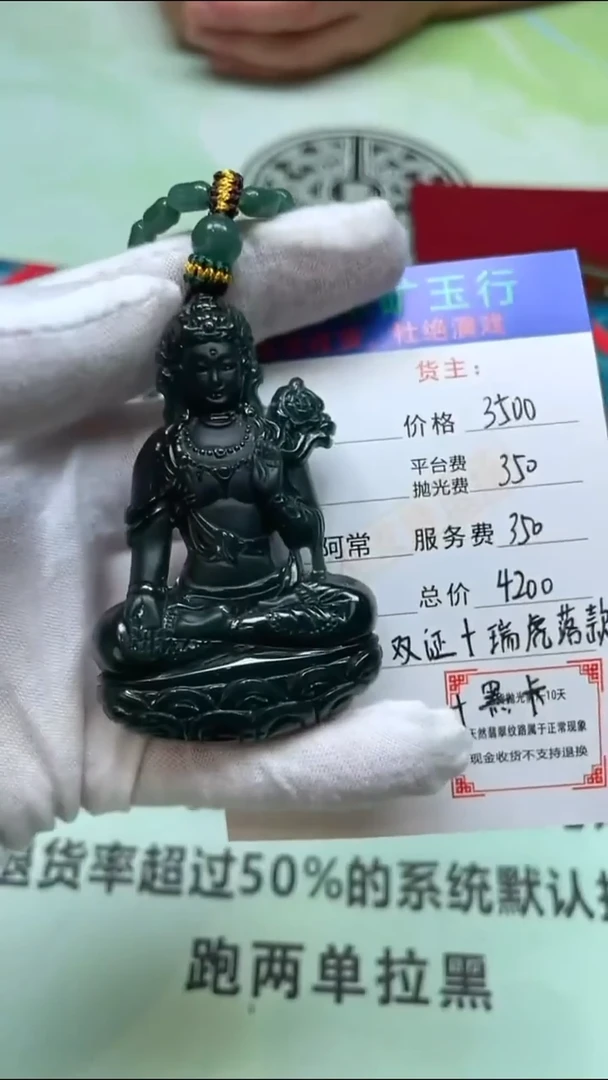 玉行
杜绝演戏
货主：
价格 3500
平台费
抛光费 350
阿常 服务费 350
总价 4200
双证十瑞虎落款
十黑卡
10天
天然翡翠纹路属于正常现象
现金收货不支持退换
退货率超过50%的系统默认
跑两单拉黑